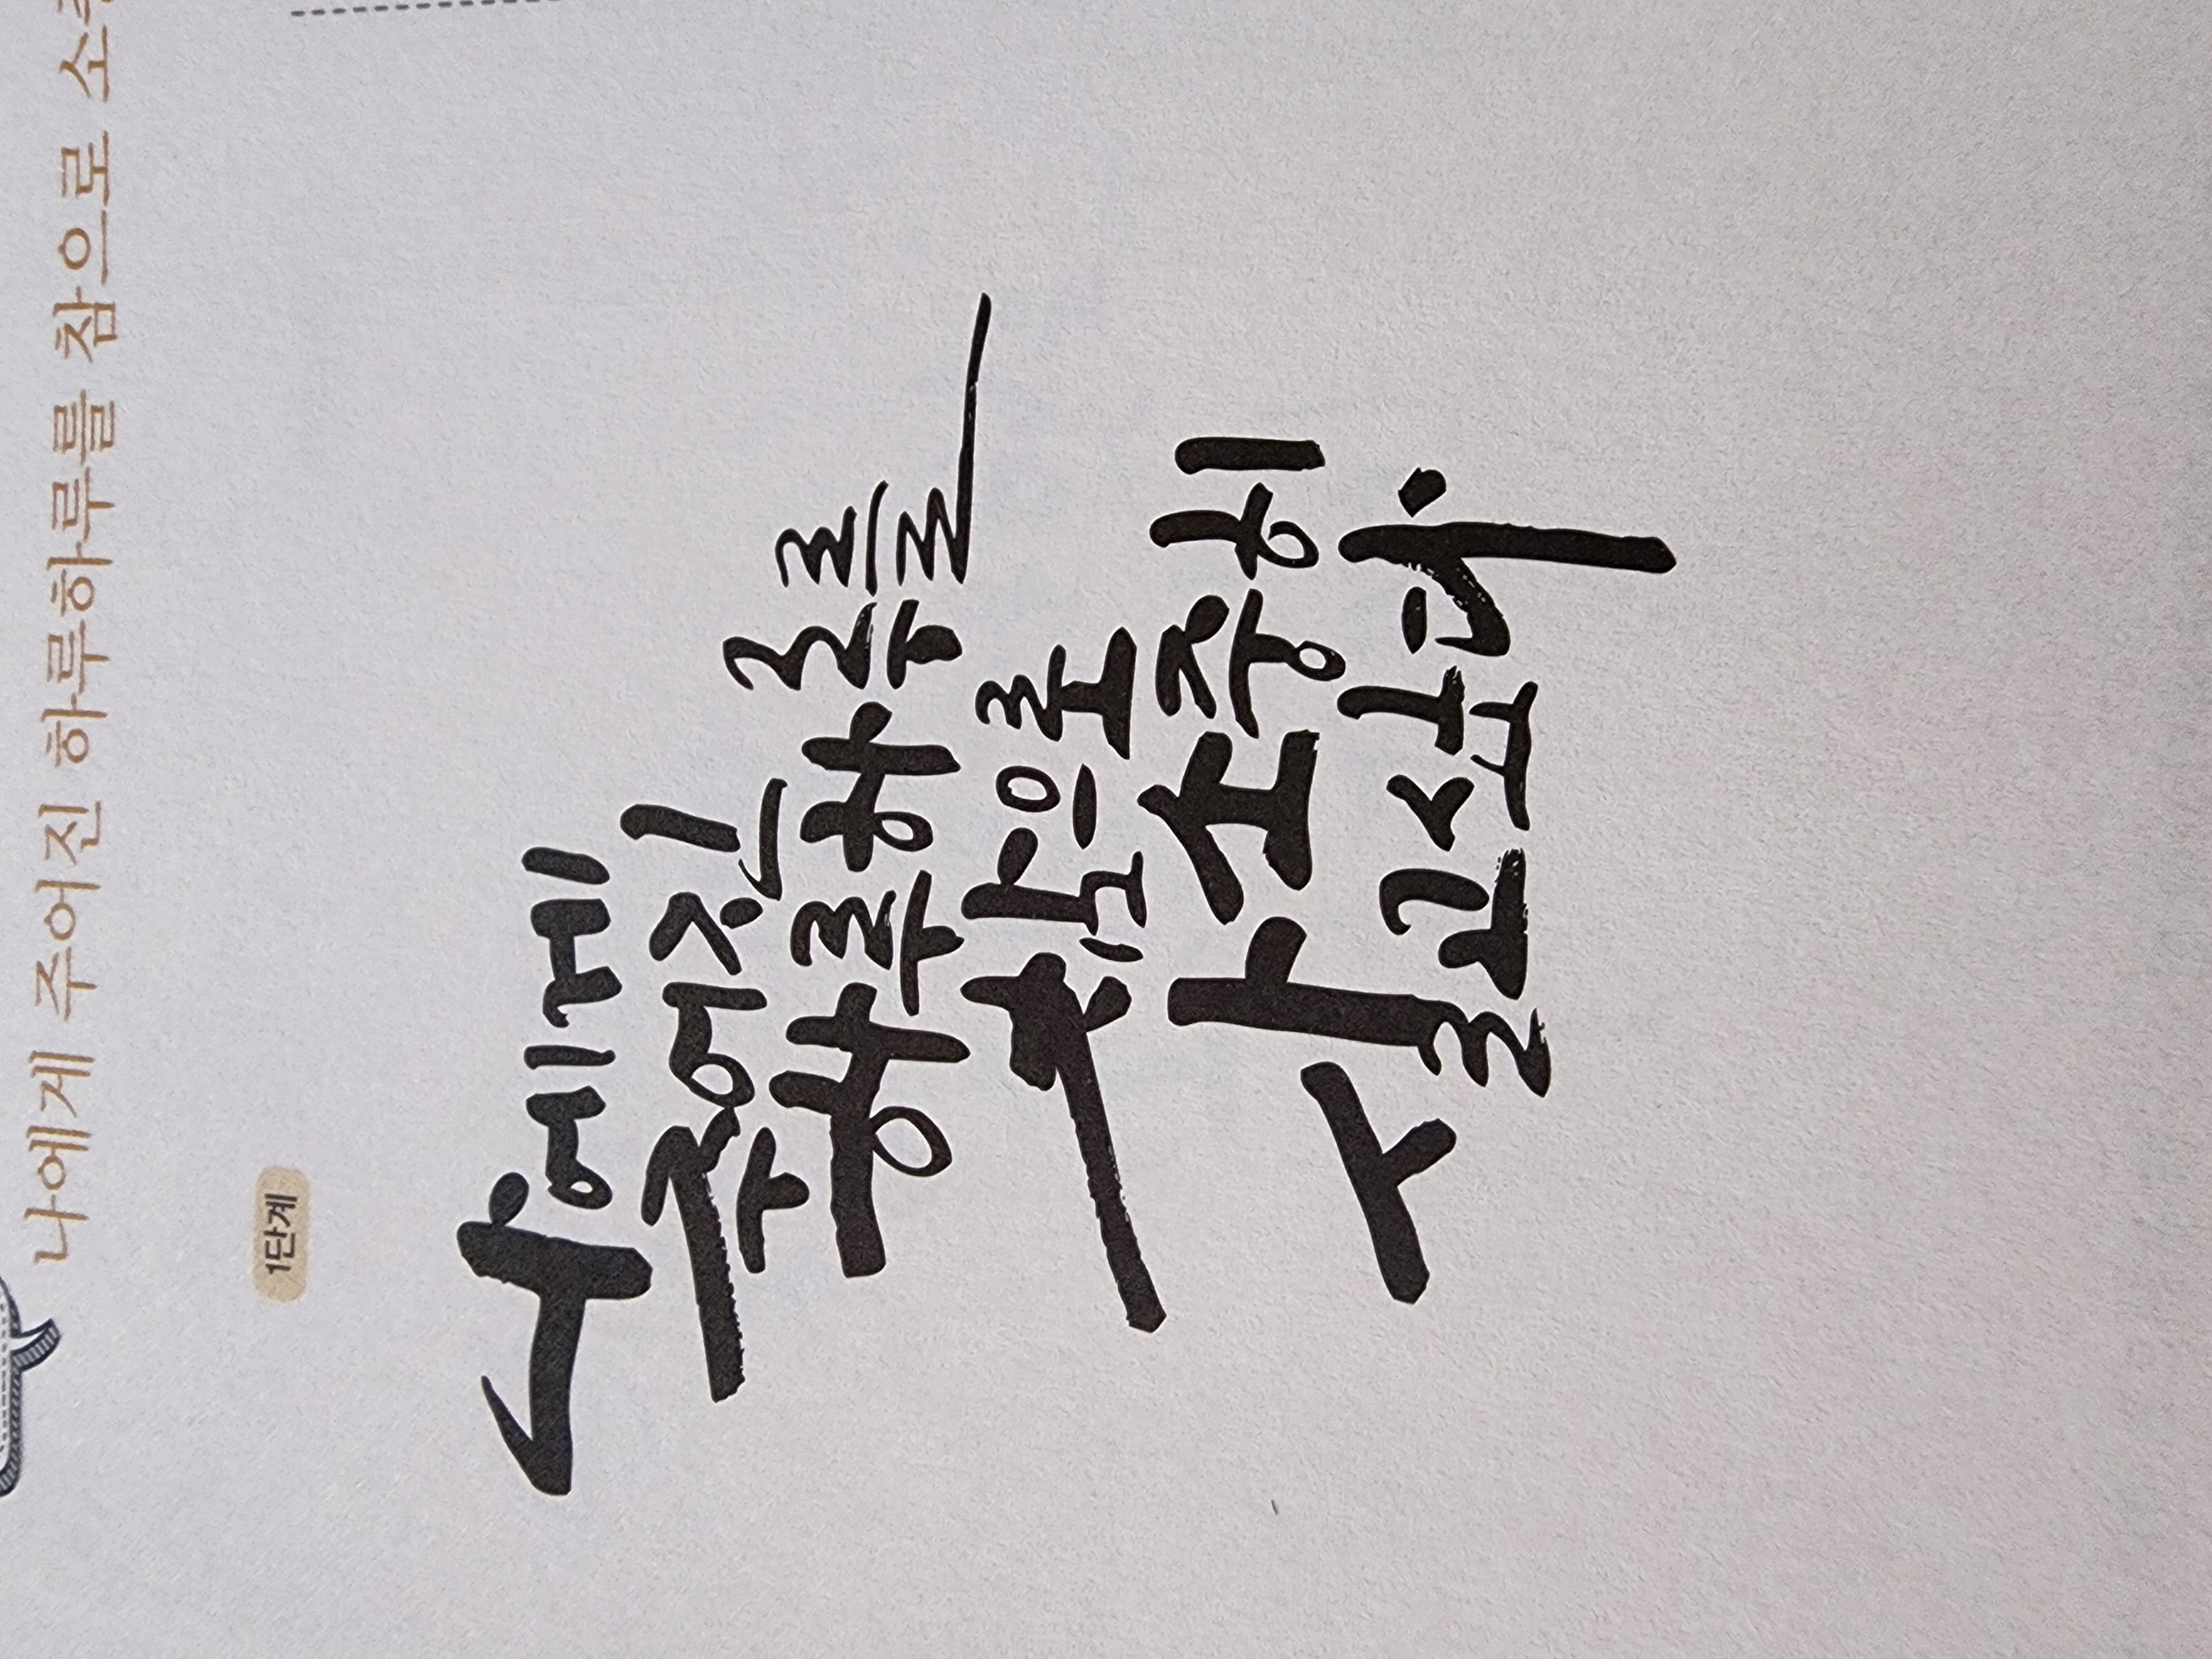 나에게 주어진 하루하루를 참으로 소
1단계
나에게
주어진
하루하루를
참으로
소중히
살고 싶다